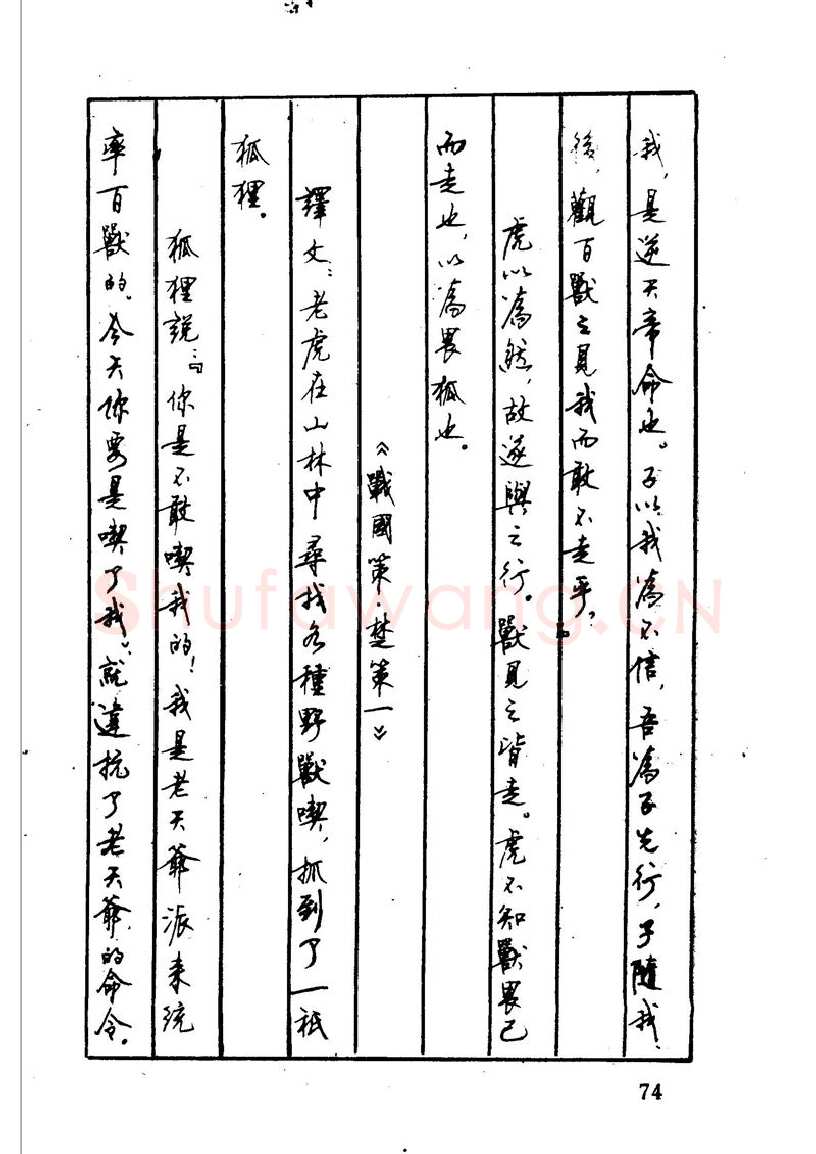 我，是逆天帝命也。子以我為不信，吾為子先行，子隨我
後，觀百獸之見我而敢不走乎。
虎以為然，故遂與之行。獸見之皆走。虎不知獸畏己
而走也，以為畏狐也。
《戰國策 楚策一》
譯文：老虎在山林中尋找各種野獸喫，抓到了一祗
狐狸。
狐狸説：『你是不敢喫我的！我是老天爺派来统
率百獸的。今天你要是喫了我。就違抗了老天爺的命令。
Shufawang.CN
74